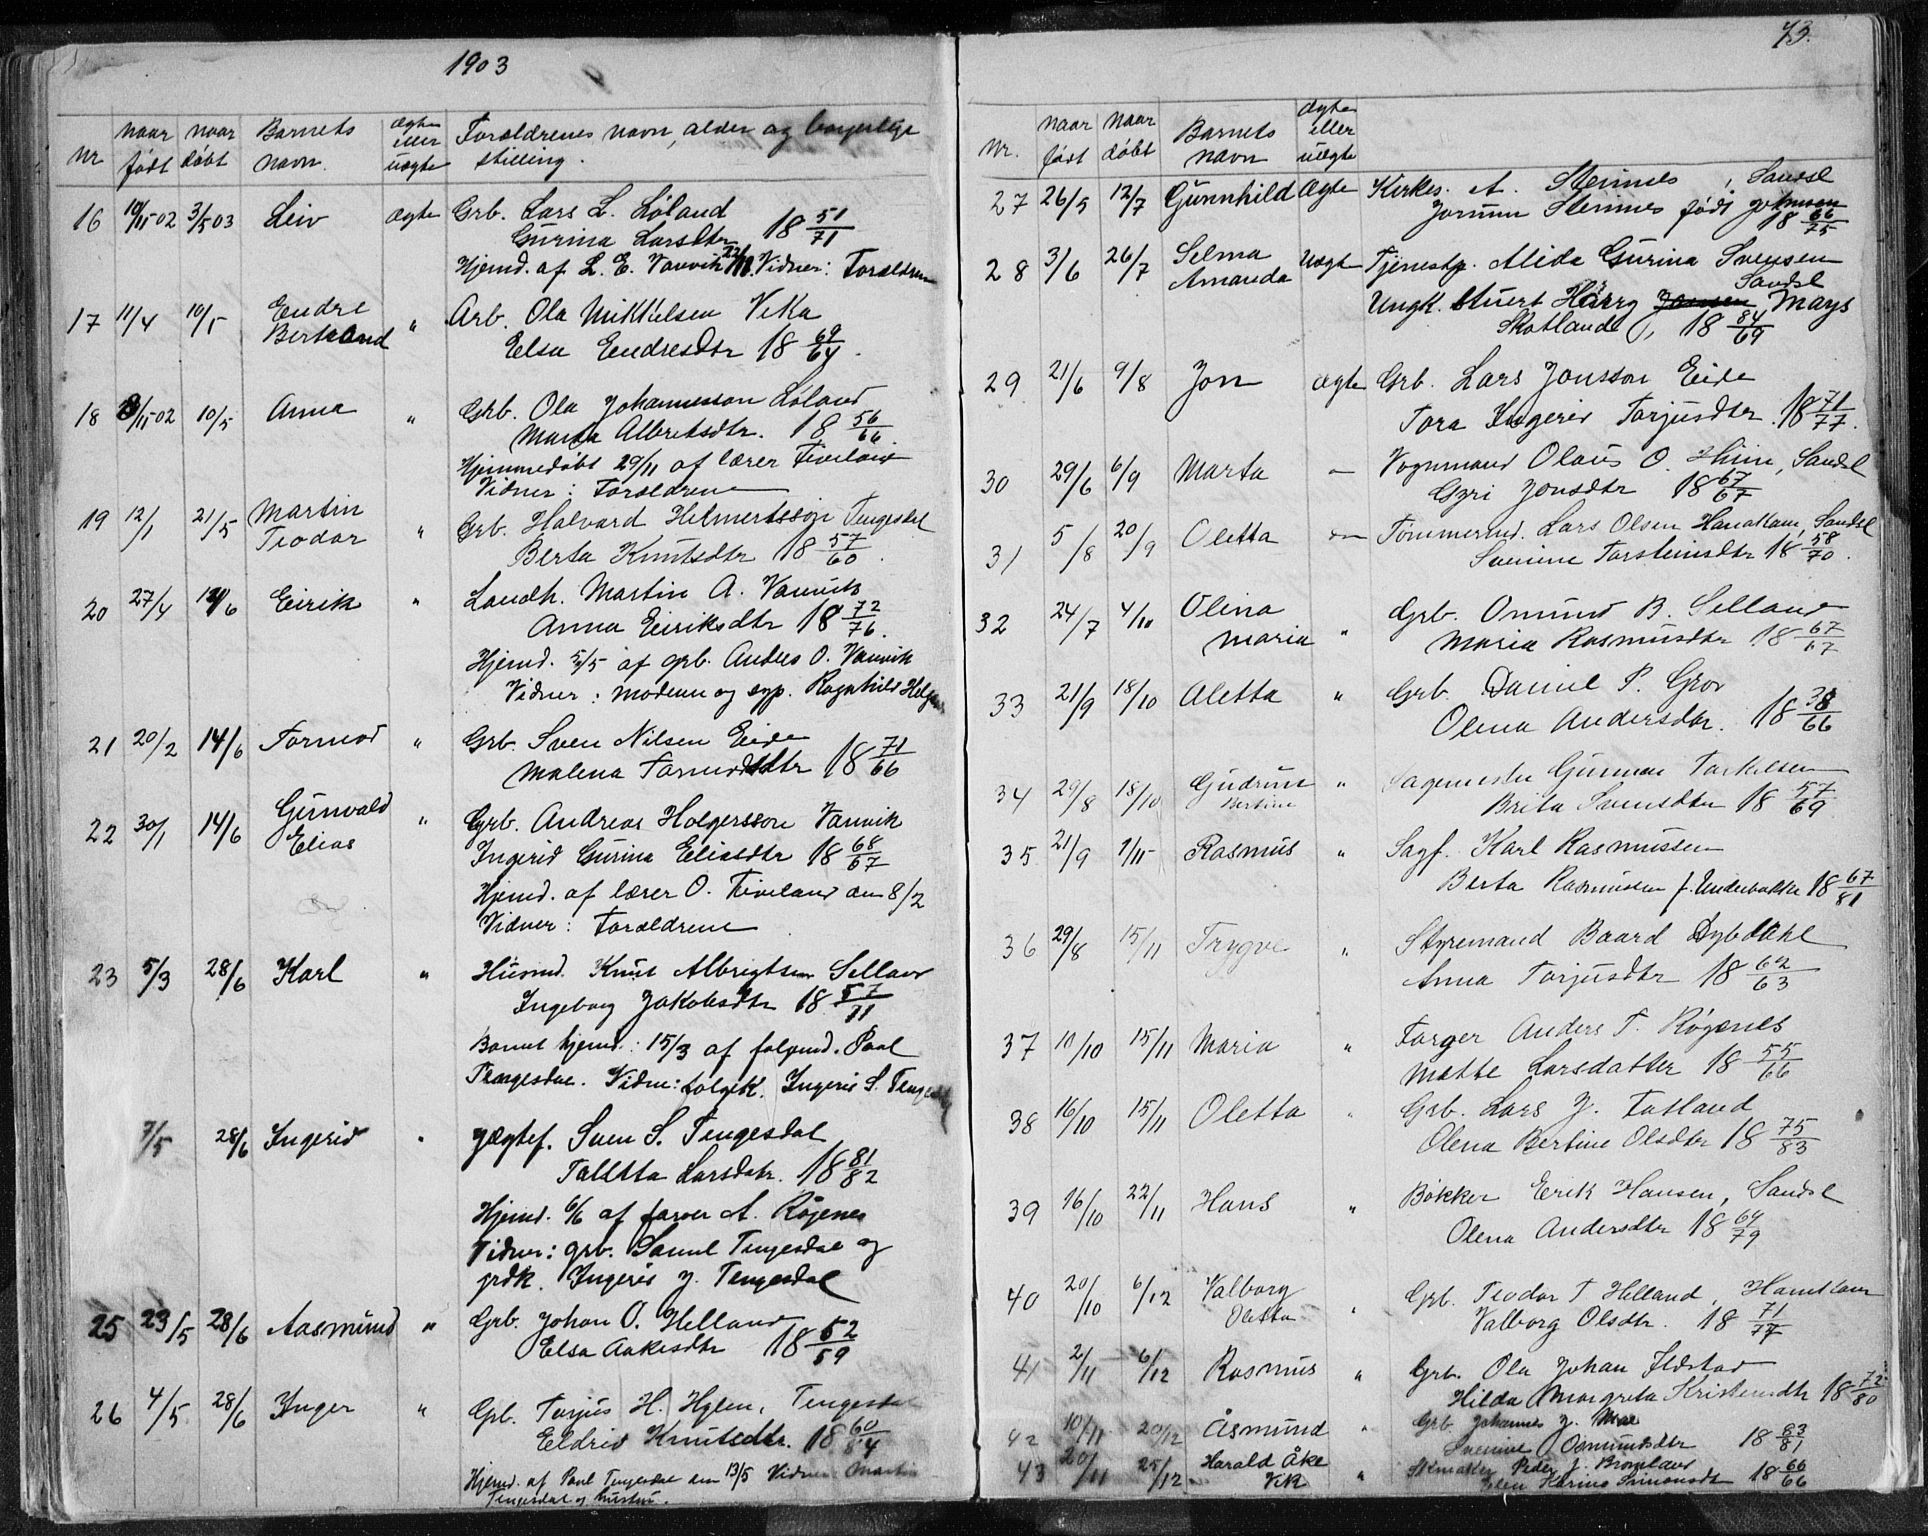 1903
Nr
naar født
naar døbt
Barnets navn.
Ægte eller uægte
Forældrenes navn, alder og borgerlige stilling.
16 19/11 02 3/5 03 Leiv ægte Grb. Lars L. Løland
Gurina Larsdtr 18 51/71
Hjemd. af L. E. Vanvik Vidner: Forældrene
17 11/4 10/5 Endre Bertrand " Arb. Ola Mikkelsen Vika
Elsa Endresdtr 18 69/64.
18 /11 02 10/5 Anna " Grb. Ola Johannesson Løland
Marta Albretsdtr. 18 56/66.
Hjemmedøbt 29/11 af lærer Tiveland
Vidner: Forældrene
19 12/1 21/5 Martin Teodor " Grb. Halvard Helmertsson Tengesdal
Berta Knutsdtr 18 57/60.
20 27/4 /6 Eirik " Landh. Martin A. Vanvik
Anna Eiriksdtr 18 72/76.
Hjemd. 5/5 af grb. Anders O. Vanvik
Vidner: Moderen og syp. Ragnhild
21 20/2 14/6 Tormod " Grb. Sven Nilsen Eide
Malena Tormodsdtr 18 71/66
22 30/1 14/6 Gunvald Elias " Grb. Andreas Holgersson Vanvik
Ingerid Gurina Eliasdtr 18 68/67
Hjemd. af lærer O. Tiveland den 8/2
Vidner: Forældrene
23 5/3 28/6 Karl " Husmd. Knut Albrigtsen Selland
Ingeborg Jakobsdtr 18 57/71
Barnet hjemd.: 15/3 af Paal
Tengesdal. Vidne: Ingerid S.
7/5 28/6 Ingerid " Sven S. Tengesdal
Taletta Larsdatr. 18 81/82
Hjemd. 6/6 af A. Røgenes
Vidner: grb. Samel Tengesdal og
grdk. Ingerid J. Tengesdal
25 23/5 28/6 Aasmund " Grb. Johan O. Helland
Elsa Aakesdtr 18 52/59
26 4/5 28/6 Inger " Grb. Torjus H. Hylen, Tengesdal
Eldrid Knutsdtr. 18 60/
Hjemd. af Paul Tengesdal den 13/5 Vidner Martin
Tengesdal og hustru.
73.
Nr.
Naar født
Naar døbt
Barnets navn
Ægte eller uægte
27 26/5 12/7 Gunnhild Ægte Kirkes. A. Steinnes, Sandsl
Jorunn Steinnes født Johnsen
18 66/75
28 3/6 26/7 Selma Amanda Uægt Tjenestp. Alida Gurina Svensen
Sandsl
Ungk. Stuert Harry Jansen Mays
Skotland, 18 84/69
29 21/6 9/8 Jon ægte Grb. Lars Jonsson Eide
Tora Ingerid Torjusdtr. 18 71/77.
30 29/6 6/9 Marta — Vognmand Olaus O. Hiim, Sandsl
Gyri Jonsdtr 18 67/67
31 5/8 20/9 Oletta — Tømmermd. Lars Olsen Hanakam, Sandsl
Sveinine Torsteinsdtr 18 58/70.
32 24/7 4/10 Olina Maria " Grb. Omund B. Selland
Maria Rasmusdtr 18 67/67
33 21/9 18/10 Aletta " Grb. Daniel P. Grov
Olena Andersdtr. 18 38/66
34 29/8 18/10 Gudrun Bertine " Sagmester Gunnar Torkelsen
Brita Svensdtr 18 57/69
35 21/9 1/11 Rasmus " Sagf. Karl Rasmussen
Berta Rasmussen f. Underbakke 18 67/81
36 29/8 15/11 Trygve " Styremand Baard Dybdahl
Anna Torjusdtr 18 62/63
37 10/10 15/11 Maria " Farger Anders T. Røgenes
Mætte Larsdatter 18 55/66
38 16/10 15/11 Oletta " Grb. Lars J. Fatland
Olena Bertine Olsdtr 18 75/83
39 16/10 22/11 Hans " Bøkker Eerik Hansen, Sandsl
Olena Andersdtr 18 64/79
40 20/10 6/12 Valborg Oletta " Grb. Teodor T Helland, Hanakam
Valborg Olsdtr. 18 71/77
41 2/11 6/12 Rasmus " Grb. Ola Johan
Hilda Margreta Kristensdtr 18 72/80
42 10/11 20/12 Åsmund " Grb Johannes J. Moe
Sveinine Osmundsdtr 18 83/81
43 20/11 25/12 Harald Åke Vik " Skmaker Peder J.
Karine Simonsdt 18 66/66